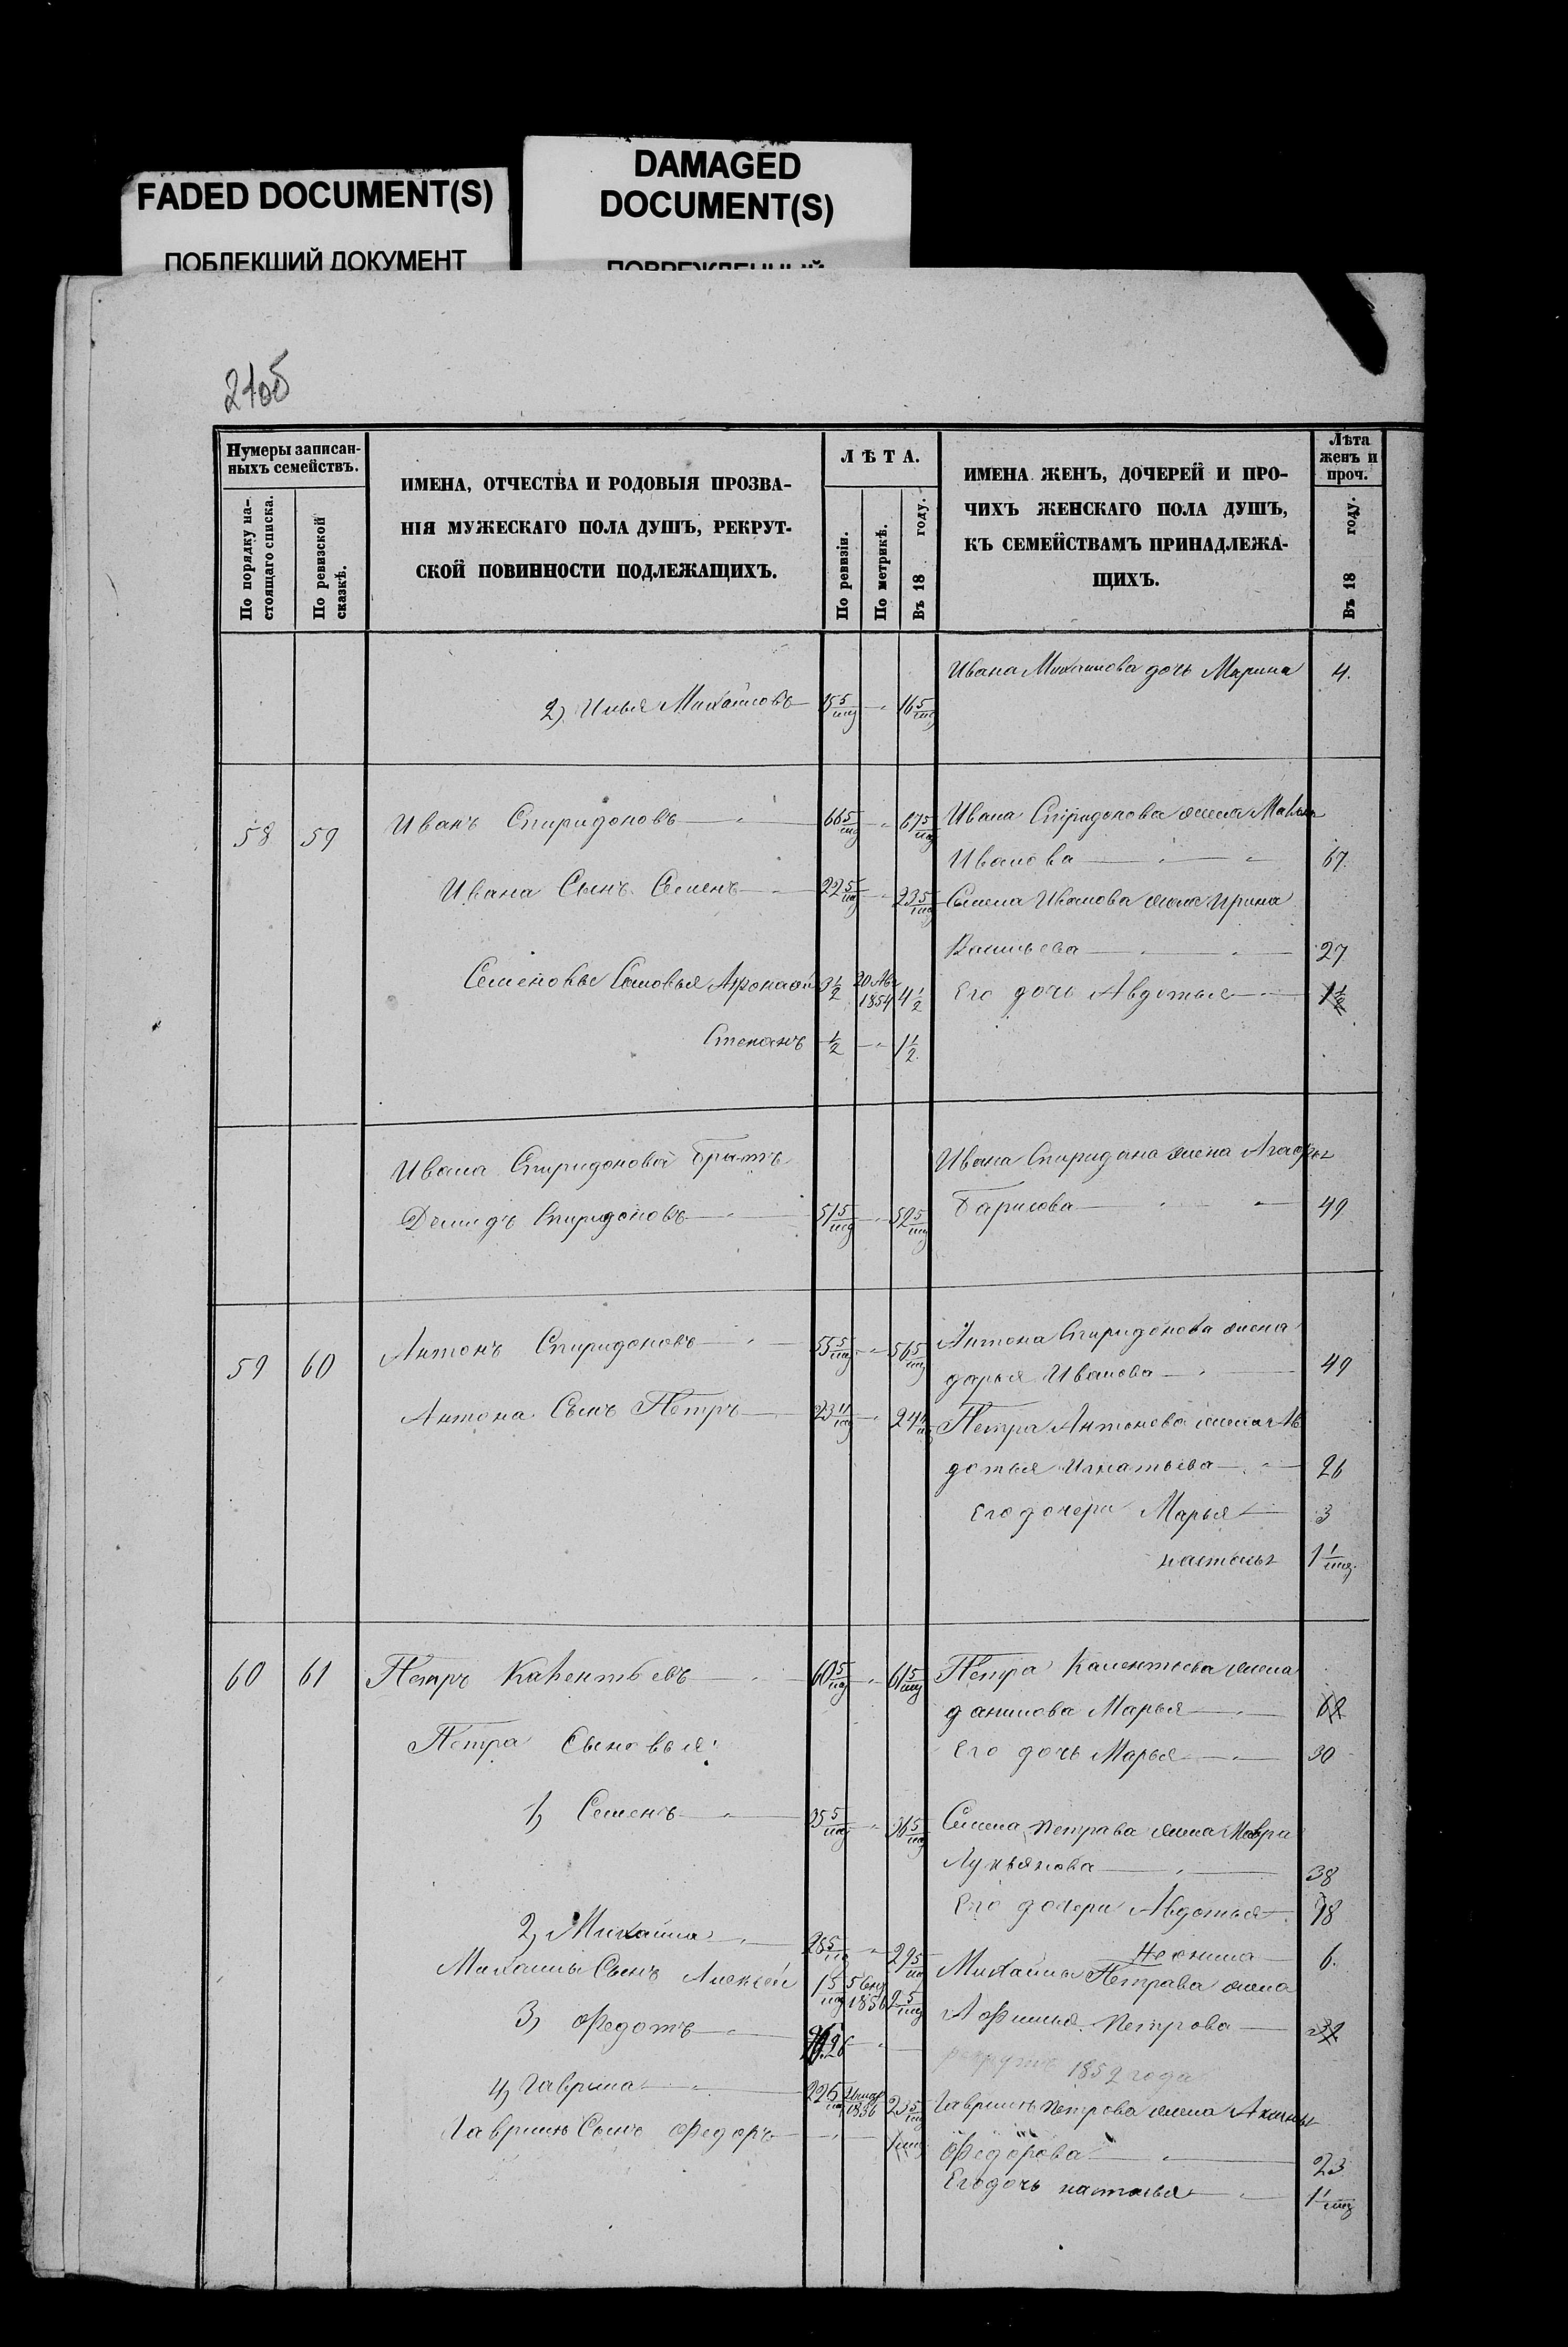 FADED DOCUMENT(S)
ПОБЛЕКШИЙ ДОКУМЕНТ
DAMAGED
DOCUMENT(S)
ПОВРЕЖДЕННЫЙ
210б
Нумеры записан-
ныхъ семействъ.
По порядку на-
стоящаго списка.
По ревизской
сказкѣ.
ИМЕНА, ОТЧЕСТВА И РОДОВЫЯ ПРОЗВА-
НІЯ МУЖЕСКАГО ПОЛА ДУШЪ, РЕКРУТ-
СКОЙ ПОВИННОСТИ ПОДЛЕЖАЩИХЪ.
ЛѢТА.
По ревизіи.
По метрикѣ.
Въ 18 году.
ИМЕНА ЖЕНЪ, ДОЧЕРЕЙ И ПРО-
ЧИХЪ ЖЕНСКАГО ПОЛА ДУШЪ,
КЪ СЕМЕЙСТВАМЪ ПРИНАДЛЕЖА-
ЩИХЪ.
Лѣта
женъ и
проч.
Въ 18 году.
Ивана Михаилова дочь Марина 4.
2) Илья Михаиловъ 15 5/мц 16 5/мц
58 59 Иванъ Спиридоновъ 66 5/мц 67 5/мц Ивана Спиридонова жена
Иванова 67.
Ивана Сынъ Семенъ 22 5/мц 23 5/мц Семена Иванова жена Ирина
Васильева 27
Семеновы Сыновья 3 1/2 20 Ав 1854 4 1/2 Его дочь Авдотья 1 1/2
Степанъ 1/2 1 1/2
Ивана Спиридонова братъ Ивана Спиридона жена
Демидъ Спиридоновъ 51 5/мц 52 5/мц Барисова 49
59 60 Антонъ Спиридоновъ 55 5/мц 56 5/мц Антона Спиридонова жена
дарья Иванова 49
Антона Сынъ Петръ 23 11/мц 24 11/мц Петра Антонова жена Ав
дотья Игнатьева 26
Его дочери Марья 3
1 1/мц.
60 61 Петръ 60 5/мц 61 5/мц Петра жена
данилова Марья 62
Петра Сыновья: Его дочь Марья 30
1) Семенъ 35 5/мц 36 5/мц Семена Петрава жена Мавра
Лукьянова 38
Его дочери Авдотья 18
2) Михаила 28 5/мц 29 5/мц 6.
Михаилы Сынъ Алексей 1 5/мц 1856 2 5/мц Михаилы Петрава жена
3) Федотъ 26 Петрова 32
1852 года
4) Гаврила 22 5/мц 1856 23 5/мц Гаврилы Петрова жена
Гаврилы Сынъ Федоръ Федорова 23
Его дочь 1 1/мц